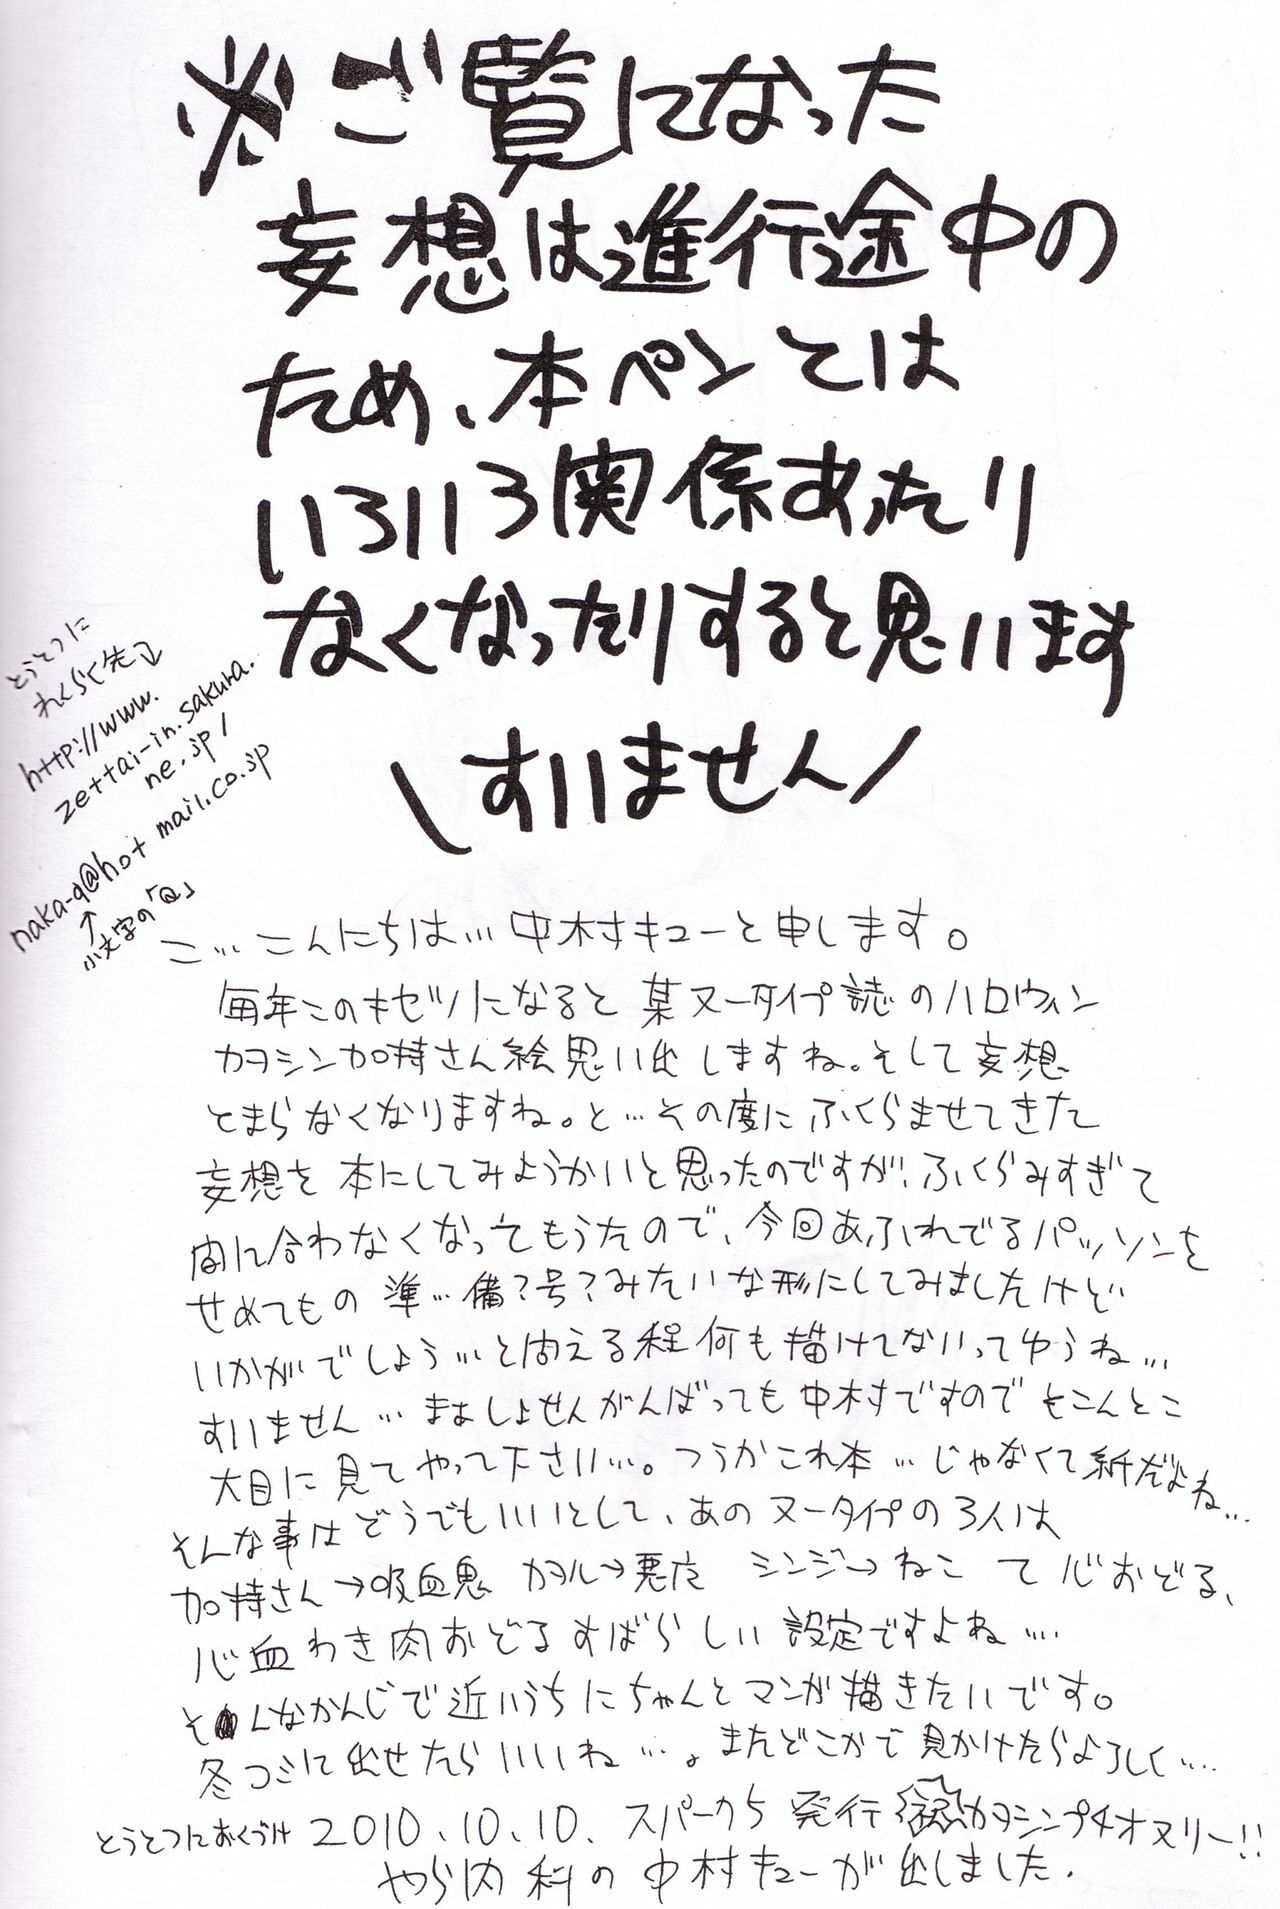 ※ご覧になった
妄想は進行途中の
ため、本ペンとは
いろいろ関係あったり
なくなったりすると思います
\すいません/
とうとつに
れんらく先↓
http://www.
zettai-in.sakura.
ne.jp/
naka-q@hotmail.co.jp
↑
小文字の「Q」
こ…こんにちは…中村キューと申します。
毎年このキセツになると某ヌータイプ誌のハロウィン
カヲシン加持さん絵思い出しますね。そして妄想
とまらなくなりますね。と…その度にふくらませてきた
妄想を本にしてみようかいと思ったのですが、ふくらみすぎて
間に合わなくなってもうたので、今回あふれでるパッソンを
せめてもの準…備?号?みたいな形にしてみましたけど
いかがでしょう…と問える程何も描けてないってゆうね…
すいません…まぁしょせんがんばっても中村ですのでそこんとこ
大目に見てやって下さい…。つうかこれ本…じゃなくて紙だよね…
そんな事はどうでもいいとして、あのヌータイプの3人は
加持さん→吸血鬼 カヲル→悪魔 シンジ→ねこ て心おどる、
心血わき肉おどるすばらしい設定ですよね…
そんなかんじで近いうちにちゃんとマンガ描きたいです。
冬コミに出せたらいいね…。またどこかで見かけたらよろしく…
とうとつにおくづけ 2010.10.10. スパーク5 発行 祝カヲシンプチオンリー!!
やら内科の中村キューが出しました.